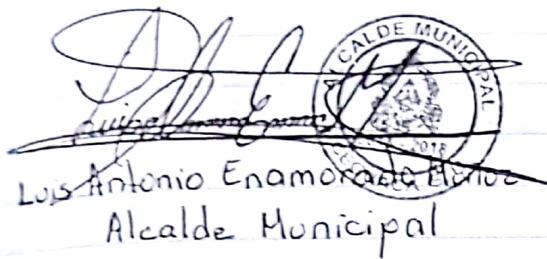 ALCALDE MUNICIPAL
2018
Luis Antonio Enamorado Muñoz
Alcalde Municipal